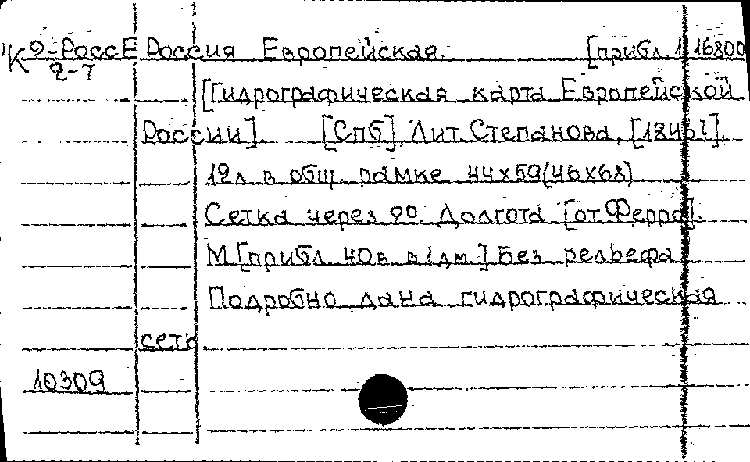 К 9-РоссЕ Россия Европейская. [прибл. 1:16800
2-7
[Гидрографическая карта Европейской
России]. [Спб], Лит. Степанова,
12л. в общ. рамке 44х59(46х68)
Сетка через 2º. Долгота [от Ферро].
М. [прибл. 40в. в 1дм.] Без рельефа
Подробно дана гидрографическая
сеть
10309